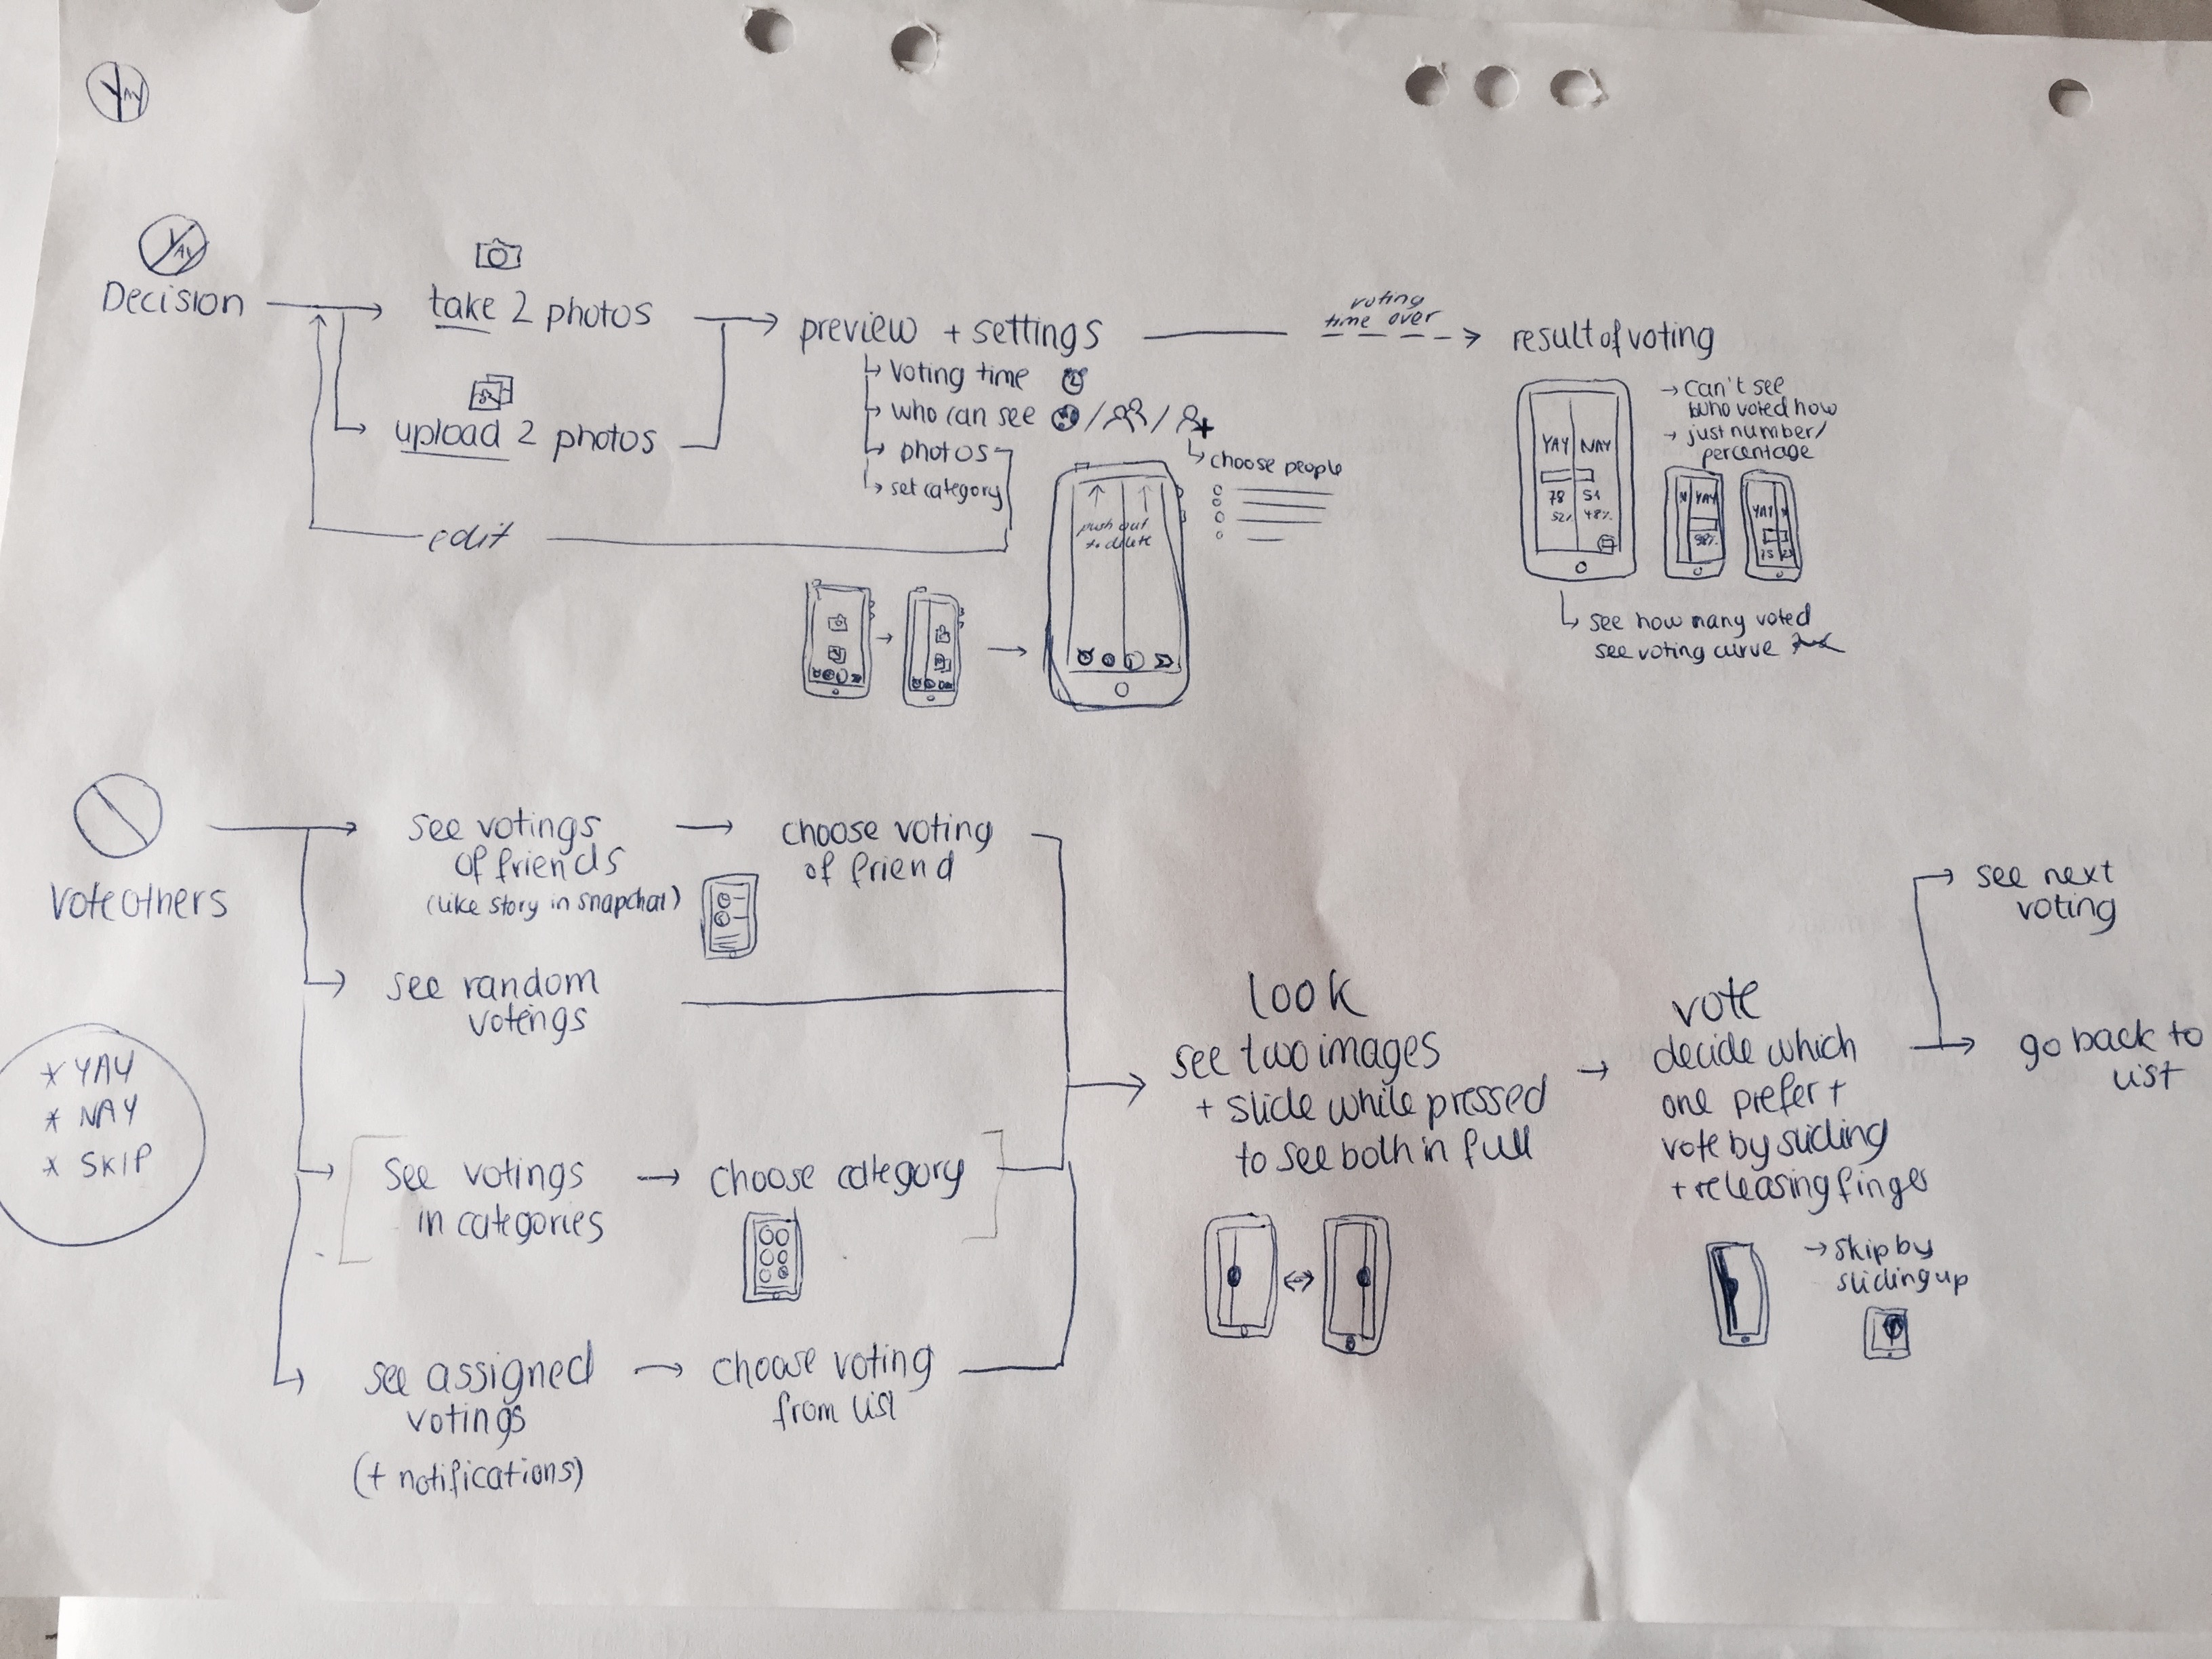 YAY
YAY
Decision
take 2 photos
upload 2 photos
edit
preview + settings
voting time
who can see / /
photos
set category
choose people
push out
to delete
voting
time over
result of voting
→ can't see
who voted how
→ just number/
percentage
YAY NAY
78 51
52% 48%
N YAY
98%
YAY N
75 25
see how many voted
see voting curve
Vote others
* YAY
* NAY
* SKIP
see votings
of friends
(like story in snapchat)
choose voting
of friend
see random
votings
see votings
in categories
choose category
see assigned
votings
(+ notifications)
choose voting
from list
look
see two images
+ slide while pressed
to see both in full
vote
decide which
one prefer +
vote by sliding
+ releasing finger
→ skip by
sliding up
see next
voting
go back to
list